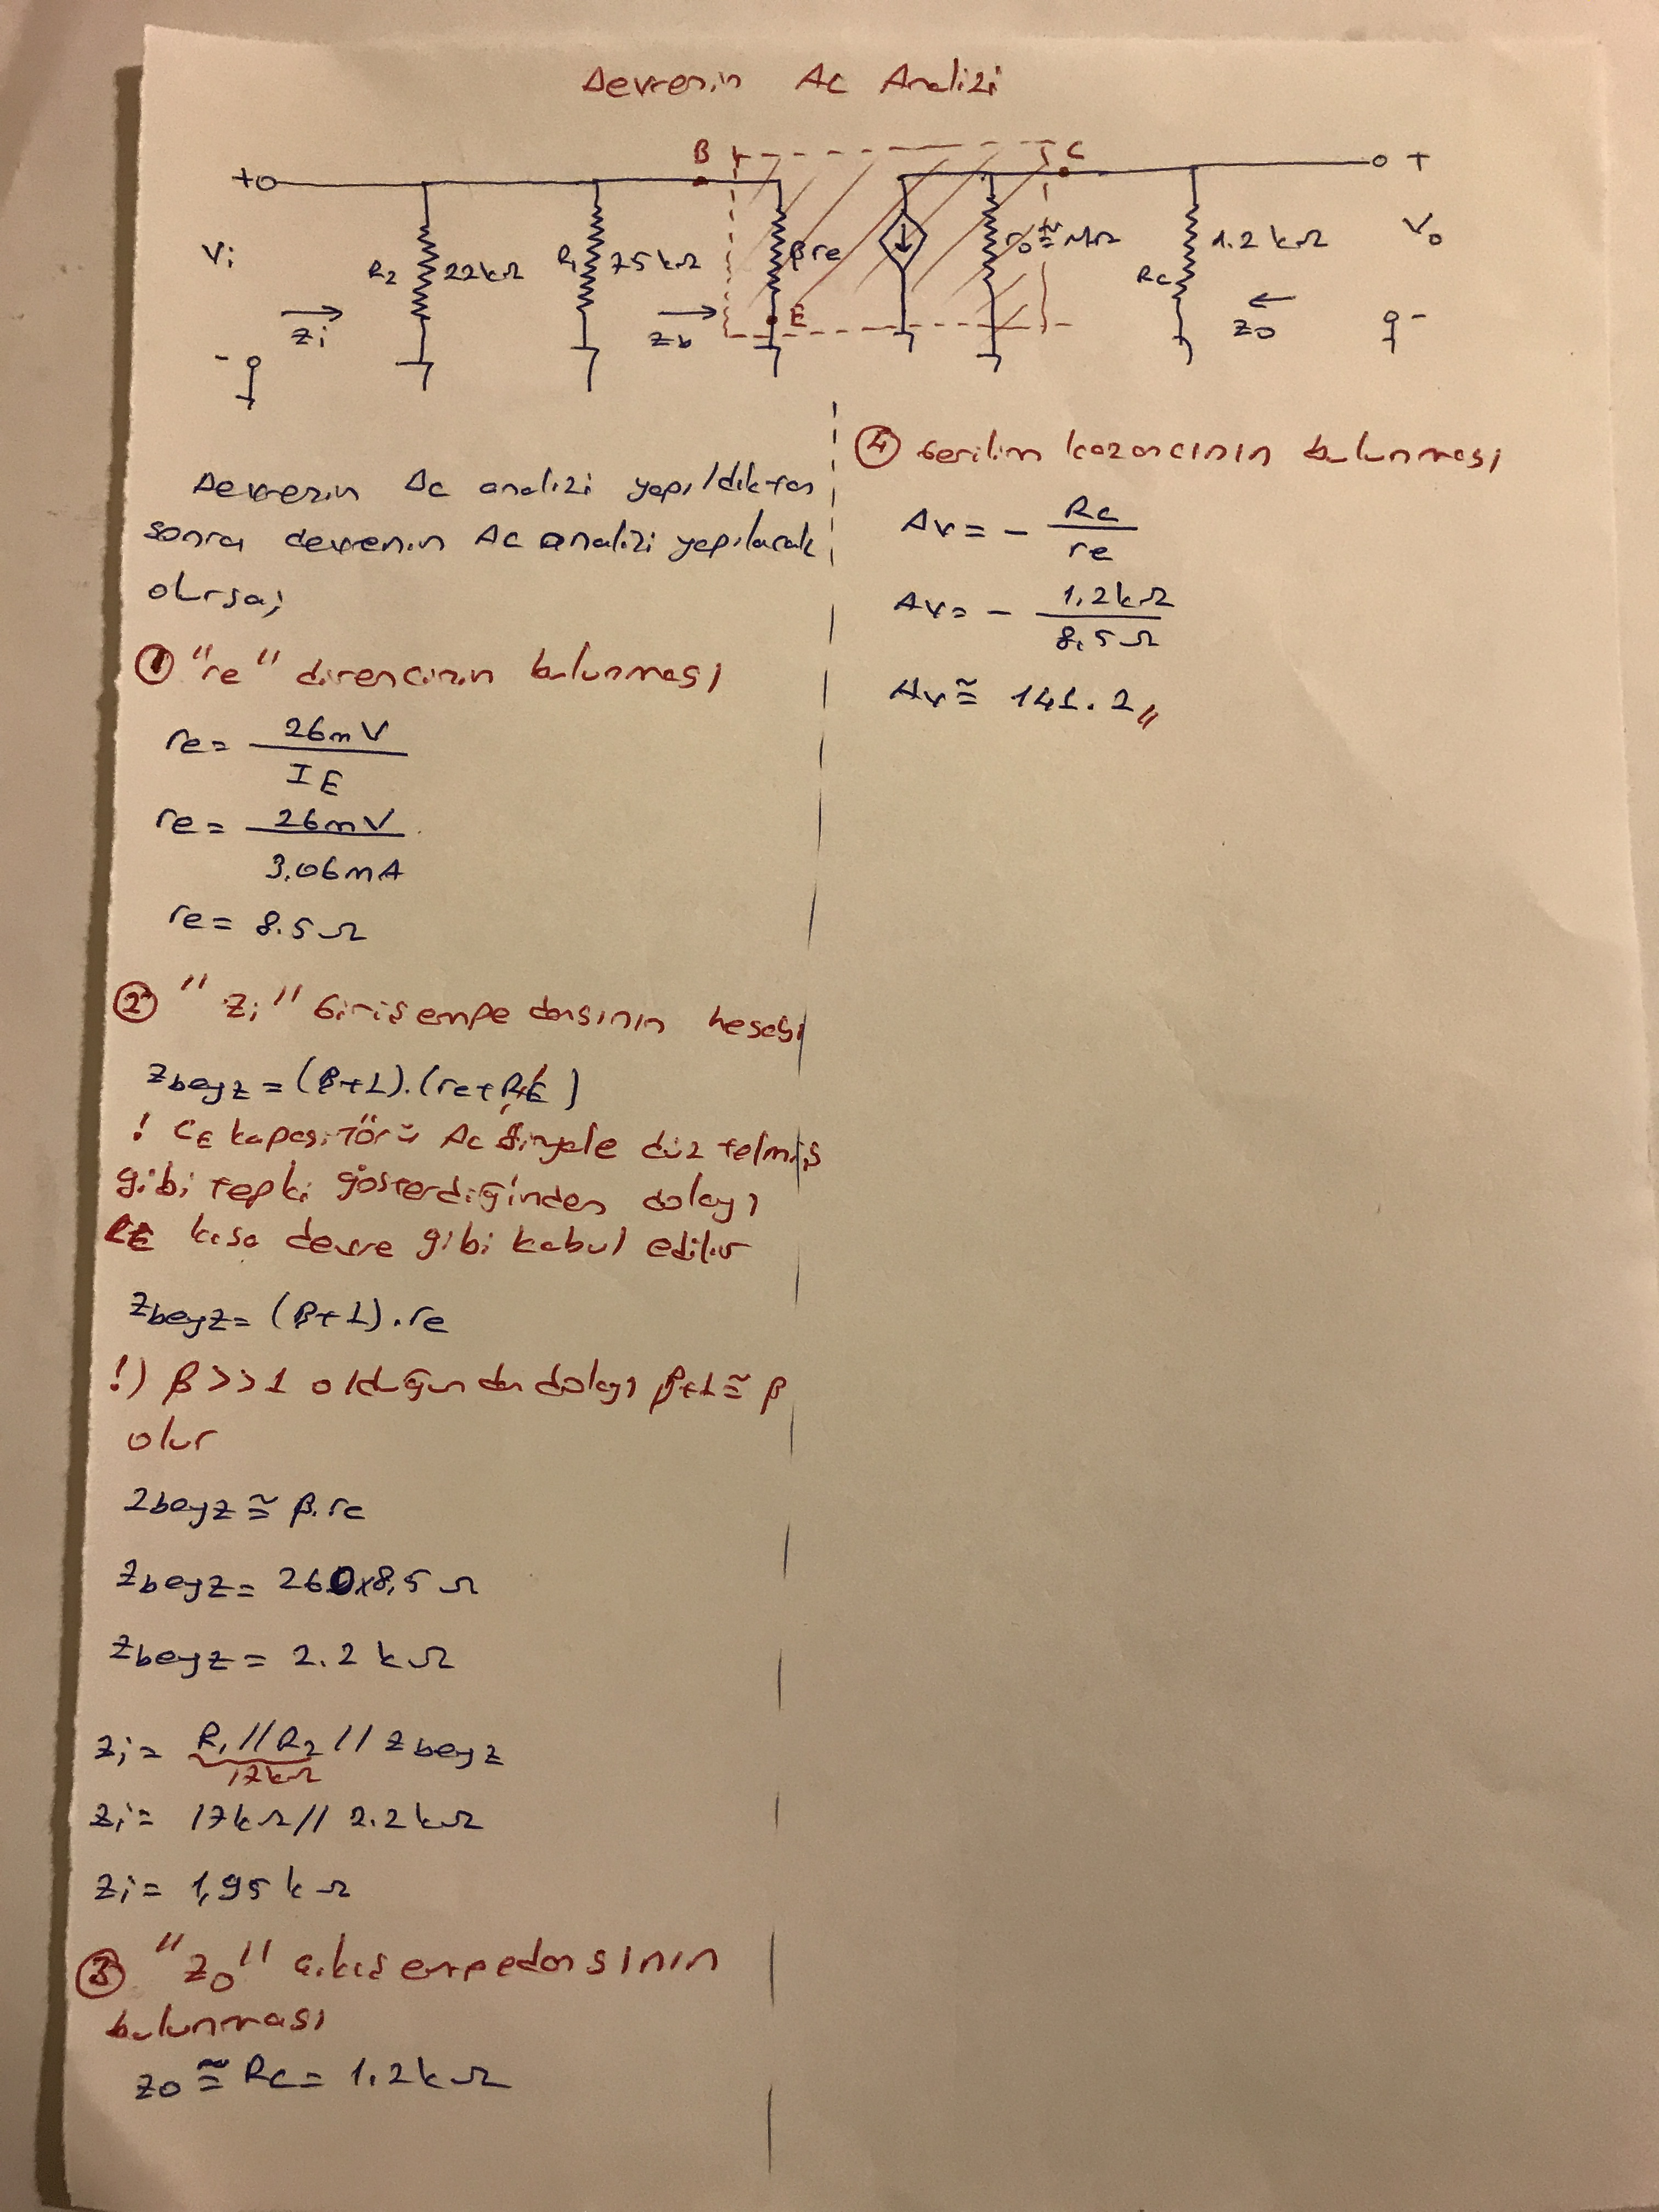 Devrenin Ac Analizi
B C
+ +
Vi R2 22kΩ R1 75kΩ βre ro≅MΩ Rc 1.2kΩ Vo
Zi Zb E Zo
- -
Devrenin Dc analizi yapıldıktan
sonra devrenin Ac analizi yapılacak
olursa;
① "re" direncinin bulunması
re= 26mV / IE
re= 26mV / 3,06mA
re= 8.5Ω
② "Zi" Giriş empedansının hesabı
Zbeyz = (β+1).(re+RE)
! CE kapasitörü Ac Sinyale düz telmiş
gibi tepki gösterdiğinden dolayı
RE kısa devre gibi kabul edilir
Zbeyz= (β+1).re
!) β>>1 olduğundan dolayı β+1≅β
olur
Zbeyz≅ β.re
Zbeyz= 260x8,5Ω
Zbeyz= 2.2kΩ
Zi= R1//R2//Zbeyz
17kΩ
Zi= 17kΩ//2.2kΩ
Zi= 1,95kΩ
③ "Zo" çıkış empedansının
bulunması
Zo≅Rc=1.2kΩ
④ Gerilim kazancının bulunması
Av= - Rc / re
Av= - 1,2kΩ / 8,5Ω
Av≅ 141.2"